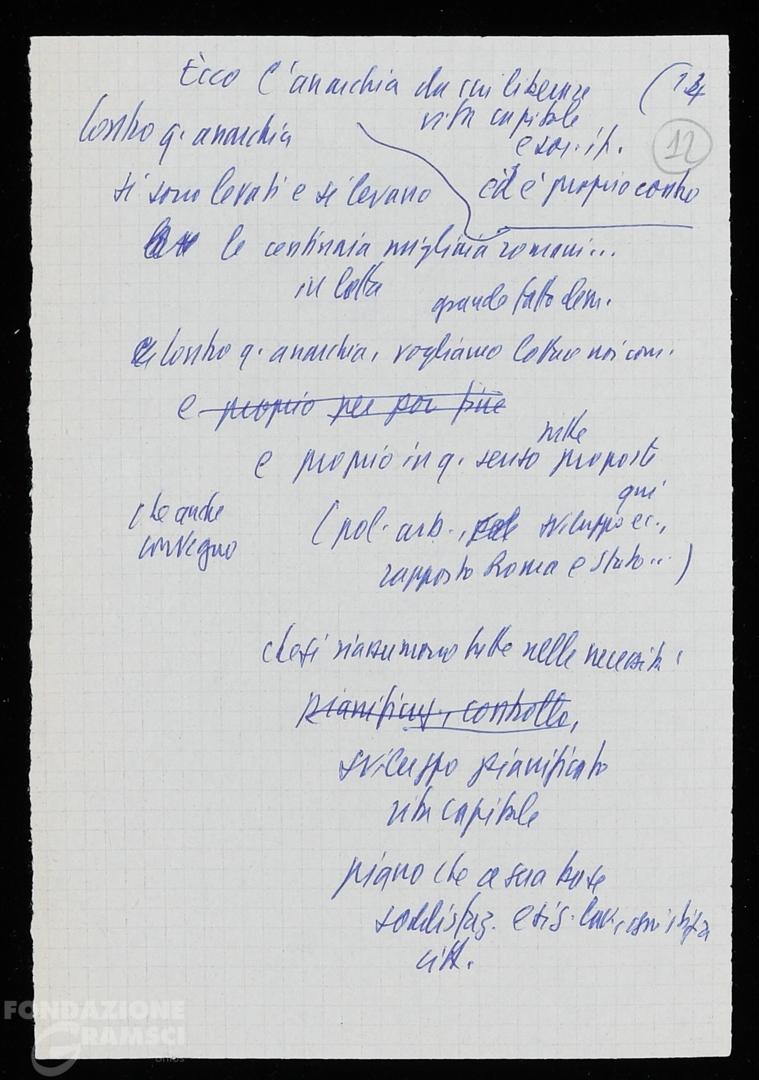 Ecco l'anarchia da cui liberare
vita capitale
e soc. it.
(14
12
Contro q. anarchia
si sono levati e si levano
ed è proprio contro
le centinaia migliaia romani...
in lotta
grande fatto dem.
Contro q. anarchia, vogliamo lottare noi com.
e proprio per por fine
e proprio in q. senso nostre proposte
che anche convegno
qui
(pol. urb., sviluppo ec.,
rapporto Roma e Stato...)
che si riassumono tutte nelle necessità:
pianificaz., controllo,
sviluppo pianificato
vita capitale
piano che a sua base
soddisfaz. esig. lav.,
citt.
FONDAZIONE
GRAMSCI
onlus